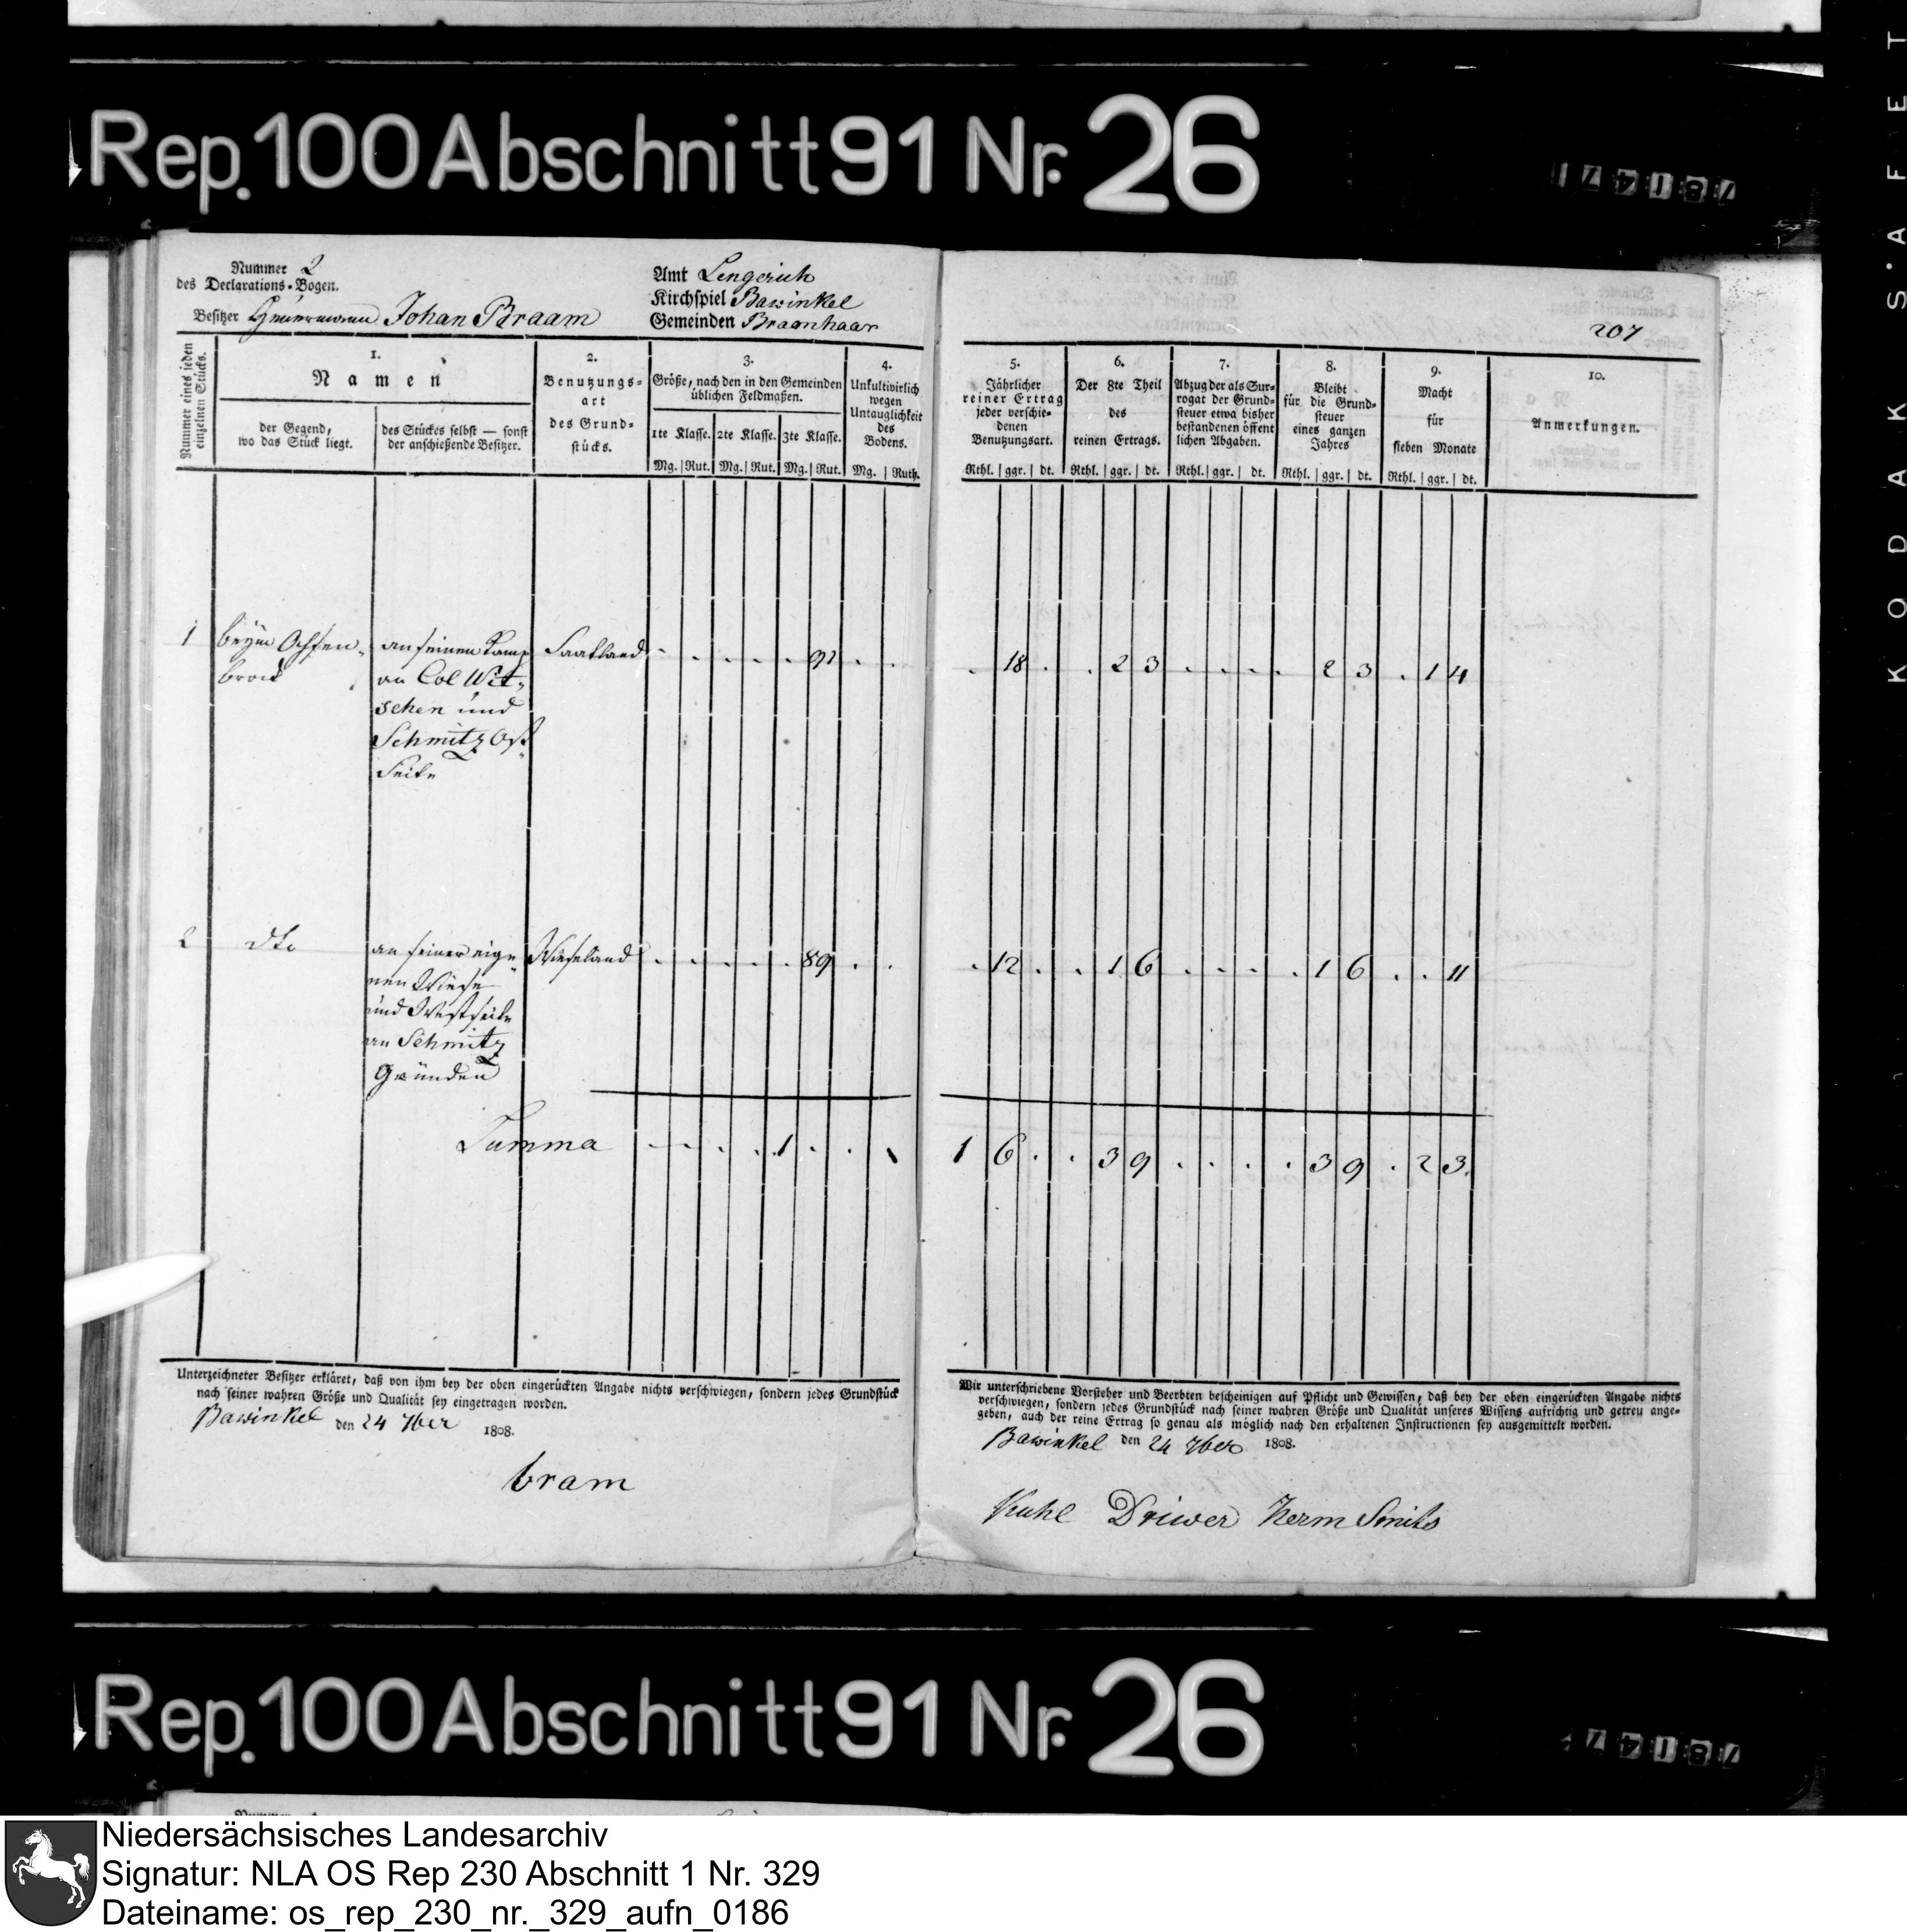 Rep. 100 Abschnitt 91 Nr. 26
Nummer 2
des Declarations-Bogen.
Besitzer Heuermann Johan Braam
Amt Lengerich
Kirchspiel Bawinkel
Gemeinden Braanhaar
207
Nummer eines jeden einzelnen Stücks.
1.
Namen
der Gegend,
wo das Stück liegt.
des Stückes selbst — sonst
der anschießende Besitzer.
2.
Benutzungs-
art
des Grund-
stücks.
3.
Größe, nach den in den Gemeinden
üblichen Feldmaßen.
1te Klasse. 2te Klasse. 3te Klasse.
Mg. Rut. Mg. Rut. Mg. Rut.
4.
Unkultivirlich
wegen
Untauglichkeit
des
Bodens.
Mg. Ruth.
5.
Jährlicher
reiner Ertrag
jeder verschie-
denen
Benutzungsart.
Rthl. ggr. dt.
6.
Der 8te Theil
des
reinen Ertrags.
Rthl. ggr. dt.
7.
Abzug der als Sur-
rogat der Grund-
steuer etwa bisher
bestandenen öffent
lichen Abgaben.
Rthl. ggr. dt.
8.
Bleibt
für die Grund-
steuer
eines ganzen
Jahres
Rthl. ggr. dt.
9.
Macht
für
sieben Monate
Rthl. ggr. dt.
10.
Anmerkungen.
1 beym Ochsen- an seinen Kamp Saatland . . . . . 91 . . . 18 . . 2 3 . . . . 2 3 . 1 4
brock an Col Wit-
schen und
Schmitz Ost
Seite
2 dto an seiner eige- Wieseland . . . . . 89 . . . 12 . . 1 6 . . . . 1 6 . . 11
nen Wiese
und Westseite
an Schmitz
Gründen
Summa . . . . 1 . . . 1 6 . . 3 9 . . . . 3 9 . 2 3
Unterzeichneter Besitzer erkläret, daß von ihm bey der oben eingerückten Angabe nichts verschwiegen, sondern jedes Grundstück
nach seiner wahren Größe und Qualität sey eingetragen worden.
Bawinkel den 24 7ber 1808.
bram
Wir unterschriebene Vorsteher und Beerbten bescheinigen auf Pflicht und Gewissen, daß bey der oben eingerückten Angabe nichts
verschwiegen, sondern jedes Grundstück nach seiner wahren Größe und Qualität unseres Wissens aufrichtig und getreu ange-
geben, auch der reine Ertrag so genau als möglich nach den erhaltenen Instructionen sey ausgemittelt worden.
Bawinkel den 24 7ber 1808.
Kuhl Driwer Herm Smits
Rep. 100 Abschnitt 91 Nr. 26
KODAK S.AFET
Niedersächsisches Landesarchiv
Signatur: NLA OS Rep 230 Abschnitt 1 Nr. 329
Dateiname: os_rep_230_nr._329_aufn_0186